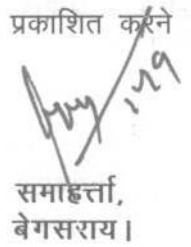 प्रकाशित करने
समाहर्त्ता,
बेगूसराय।